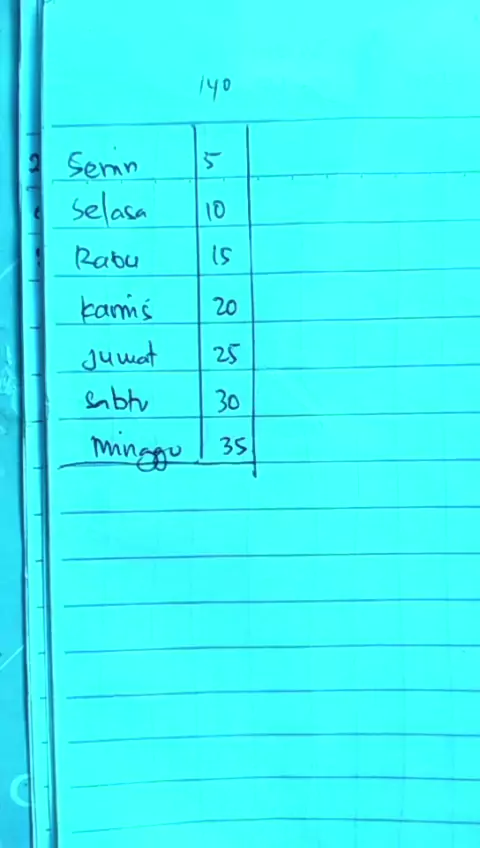 140
Senin 5
Selasa 10
Rabu 15
kamis 20
Jumat 25
sabtu 30
minggu 35